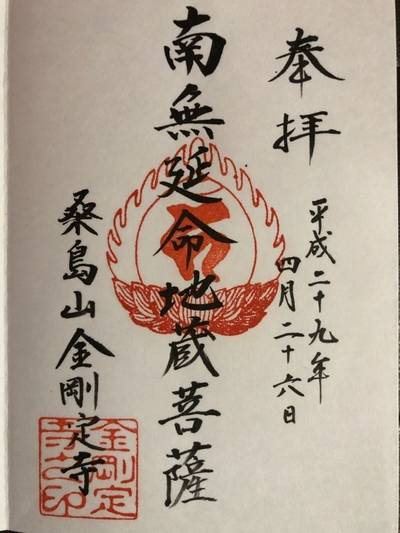 奉拝
平成二十九年
四月二十六日
南無延命地蔵菩薩
桑島山金剛定寺
金剛定
寺之印